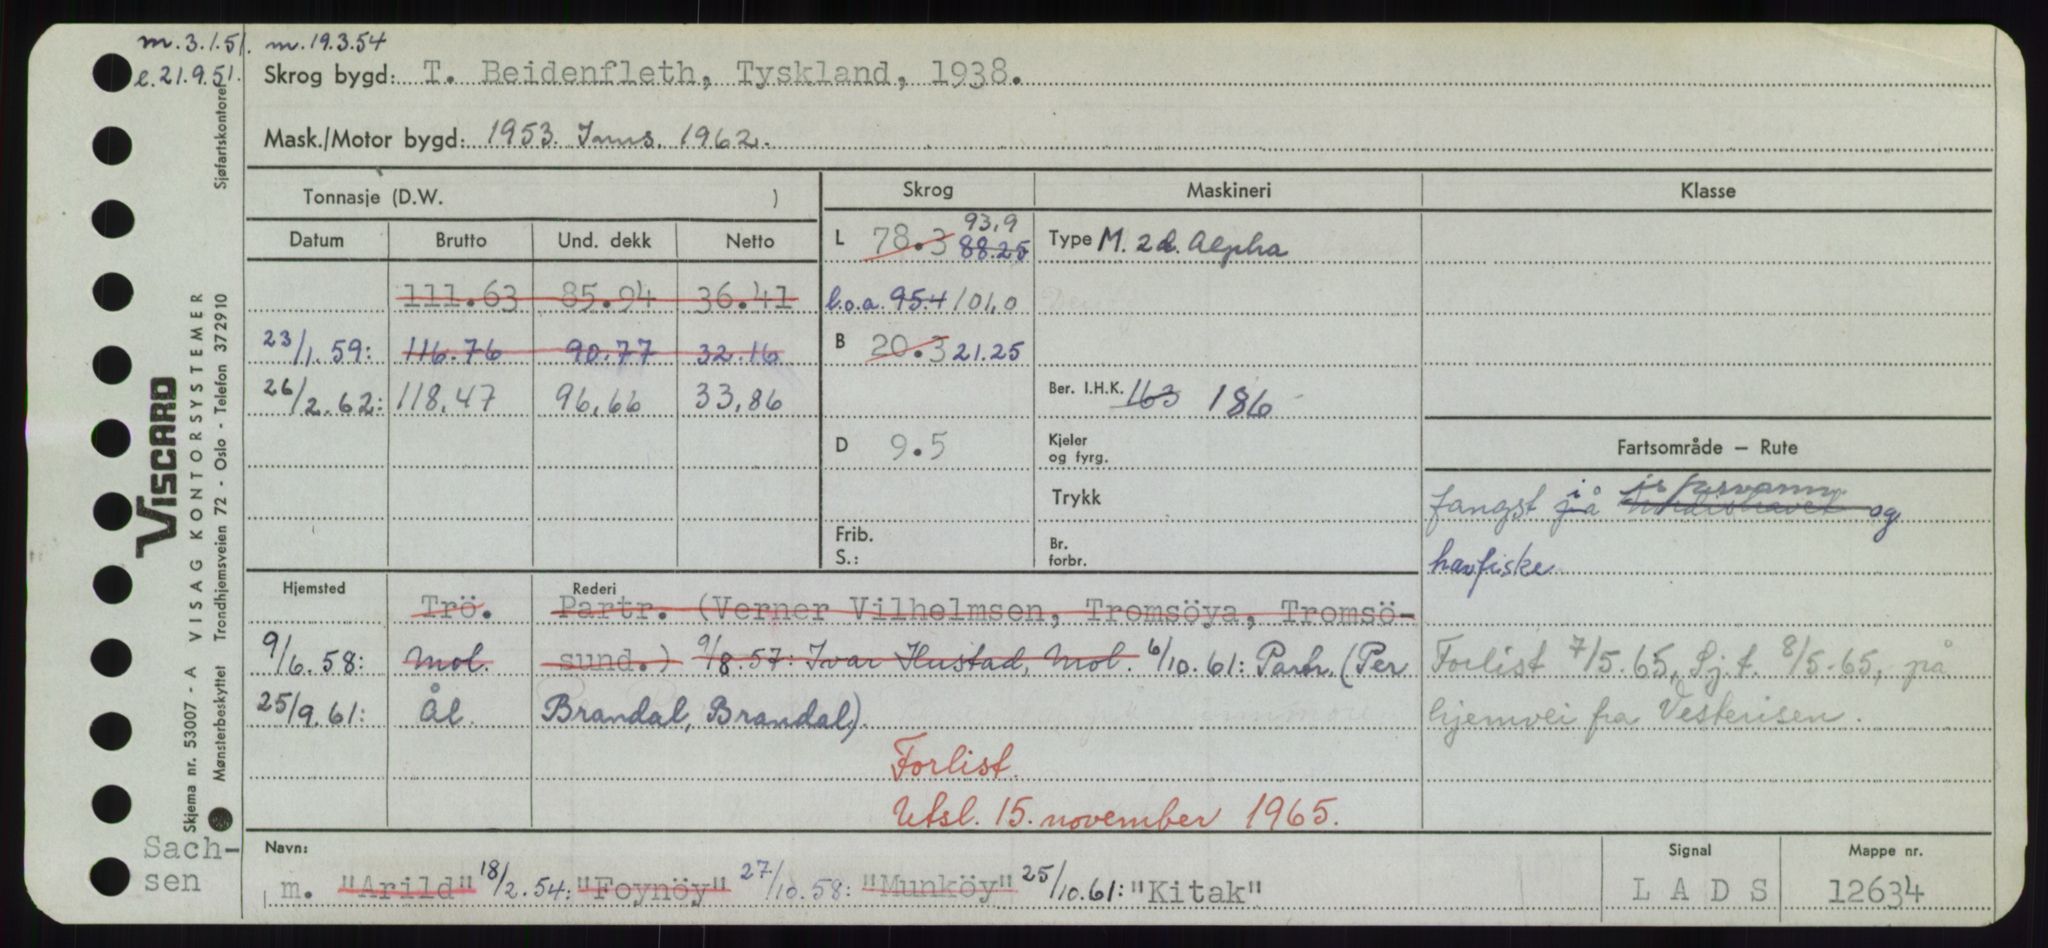 m. 3.1.51. m. 19.3.54
e. 21.9.51.
Skrog bygd: T. Beidenfleth, Tyskland, 1938.
Mask./Motor bygd: 1953. Inns. 1962.
Tonnasje (D.W. )
Skrog
Maskineri
Klasse
Datum Brutto Und. dekk Netto
L 78.3 88.25 93,9
Type M. 2 d. Alpha
111.63 85.94 36.41
l.o.a. 95.4 101,0
23/1.59: 116.76 90.77 32.16
B 20.3 21.25
26/2.62: 118,47 96,66 33,86
Ber. I.H.K. 163 186
D 9.5
Kjeler
og fyrg.
Fartsområde – Rute
Trykk
fangst på i Nordishavet isfarvann og
havfiske
Frib.
S.:
Br.
forbr.
Hjemsted Rederi
Trö. Partr. (Verner Vilhelmsen, Tromsöya, Tromsö-
9/6.58: Mol. sund.) 9/8.57: Ivar Hustad, Mol. 6/10.61: Partr. (Per
25/9.61: Ål. Brandal, Brandal).
Forlist 7/5.65, Sj.f. 8/5.65, på
hjemvei fra Vesterisen.
Forlist.
Utsl. 15. november 1965.
Navn:
m. "Arild" 18/2.54: "Foynöy" 27/10.58: "Munköy" 25/10.61: "Kitak"
Signal
L A D S
Mappe nr.
12634
Sach-
sen
VISCARD
VISAG KONTORSYSTEMER
Sjøfartskontoret
Skjema nr. 53007 - A
Mønsterbeskyttet Trondhjemsveien 72 - Oslo - Telefon 372910